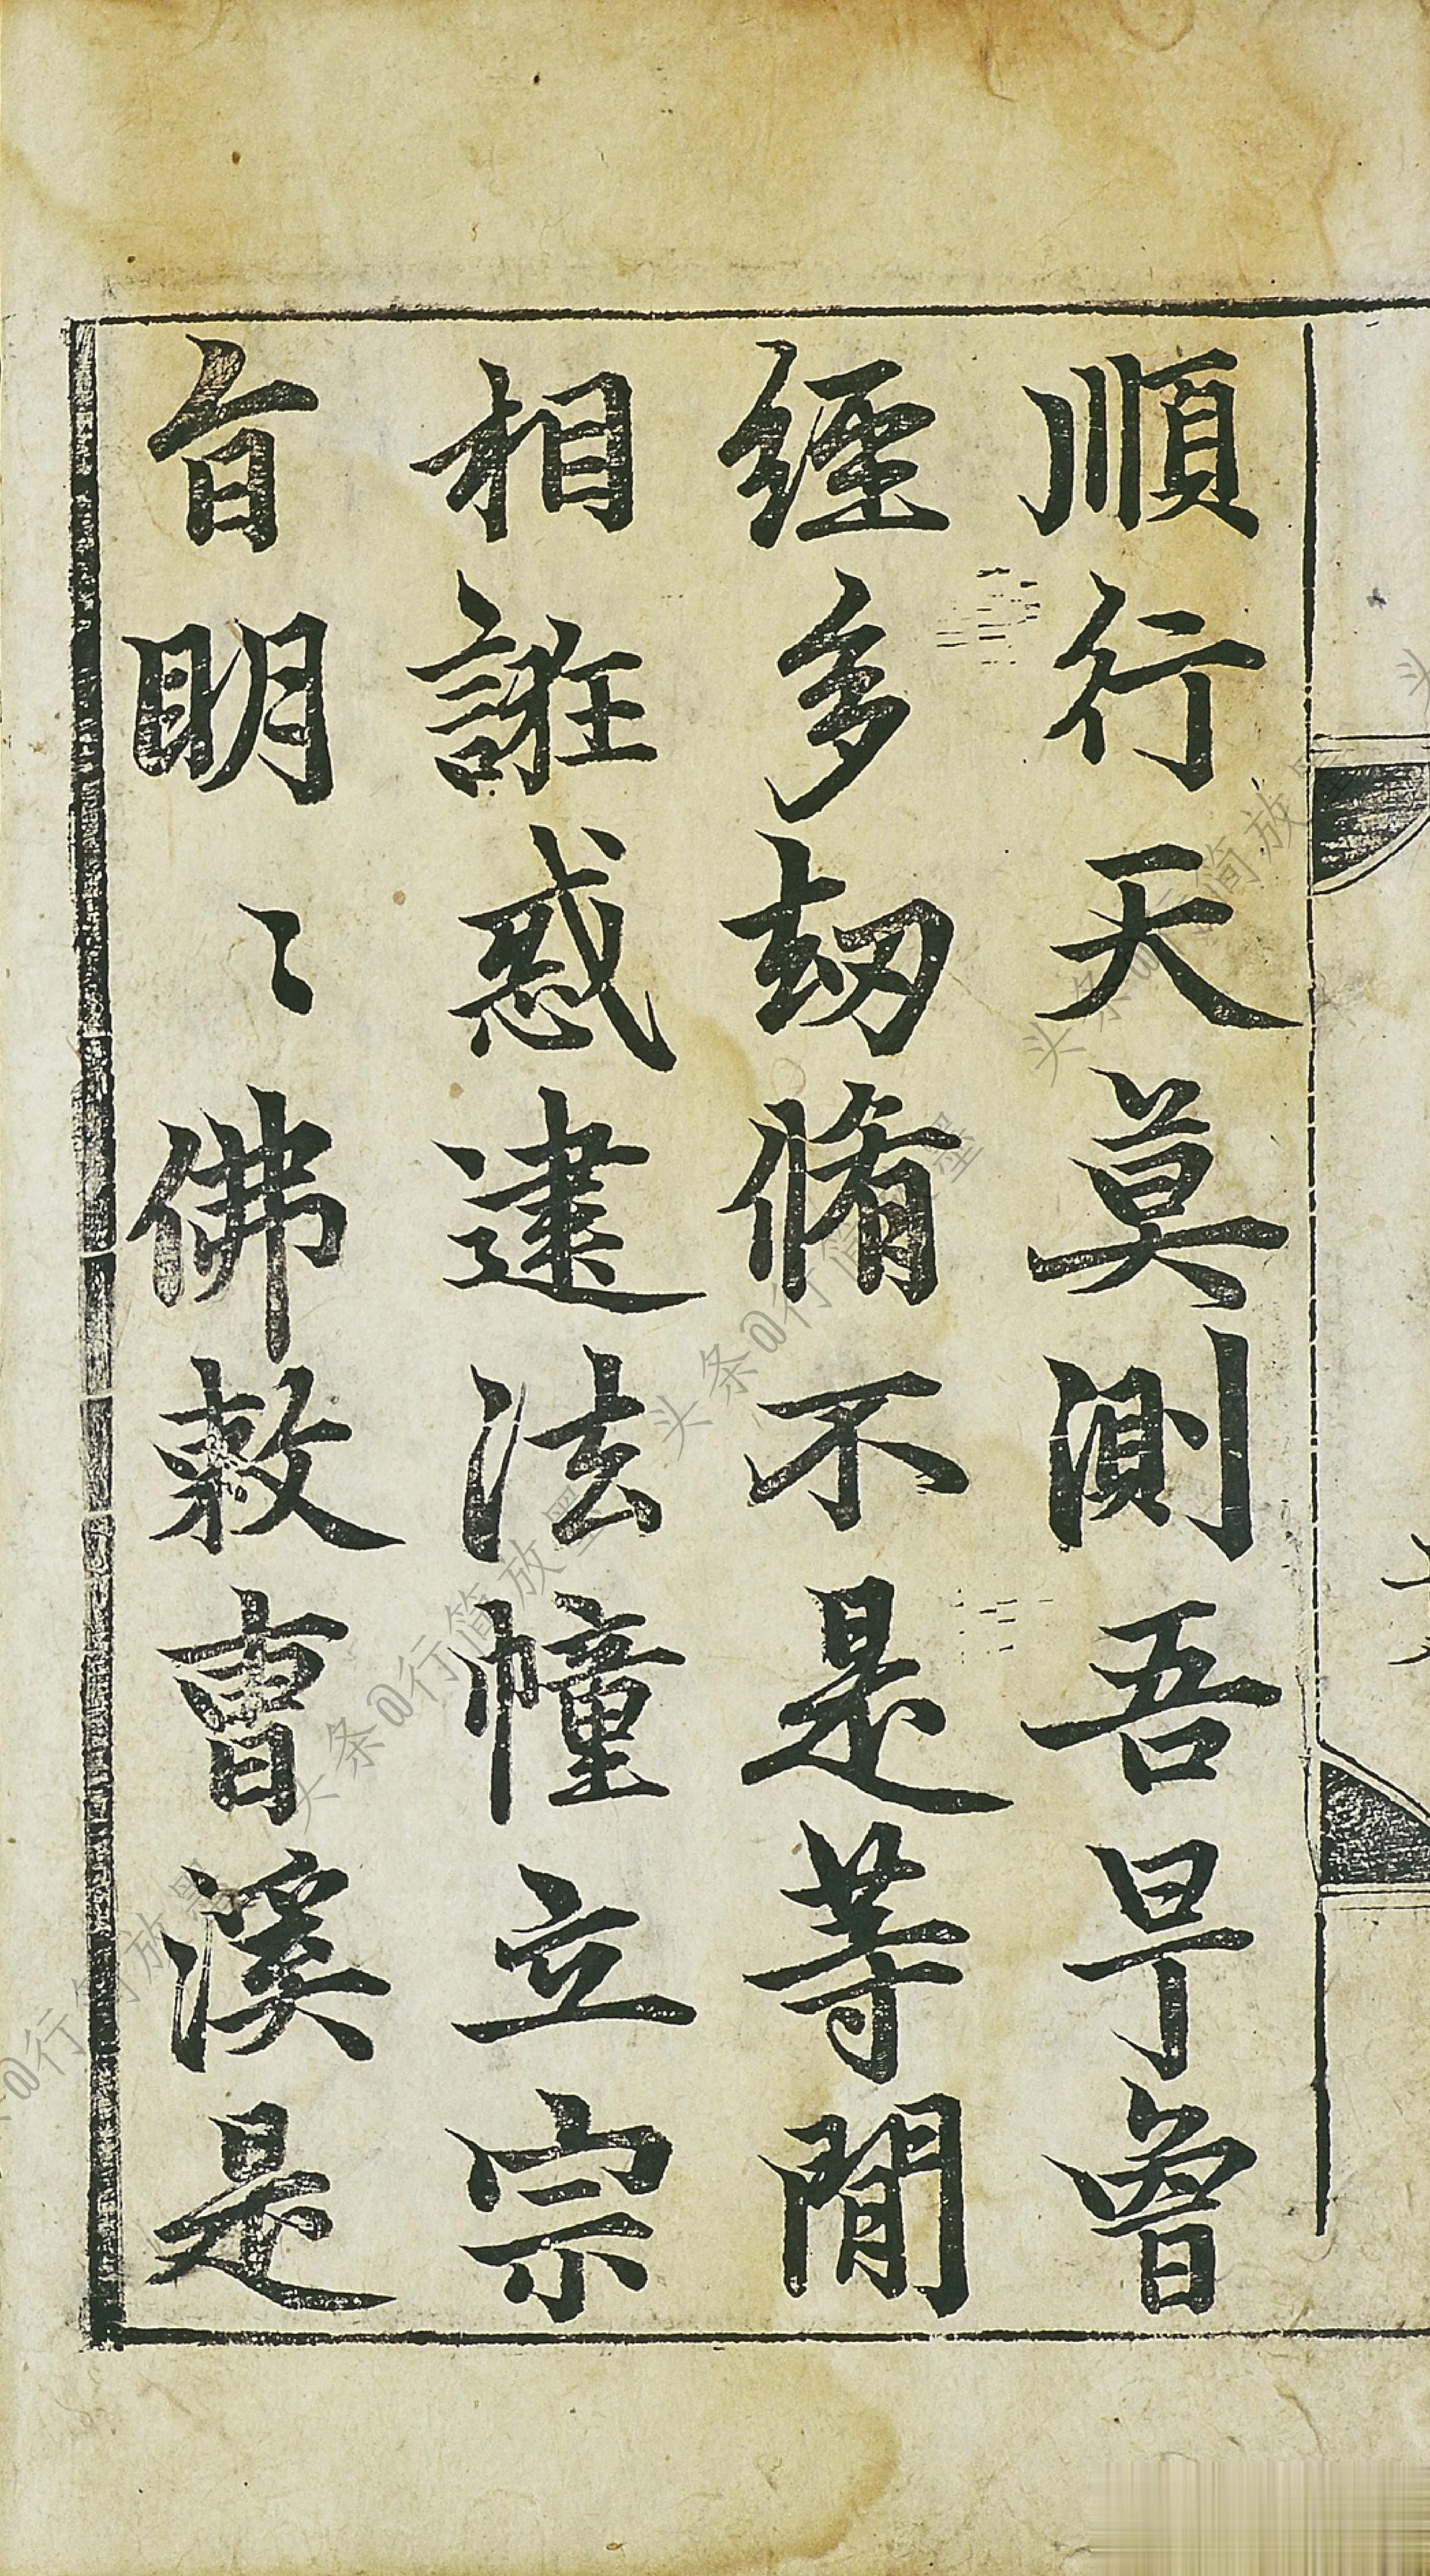 順行天莫測吾早曾
經多劫脩不是等閒
相誑惑建法幢立宗
旨明〻佛敕曹溪是
头条@行简放墨
头条@行简放墨
头条@行简放墨